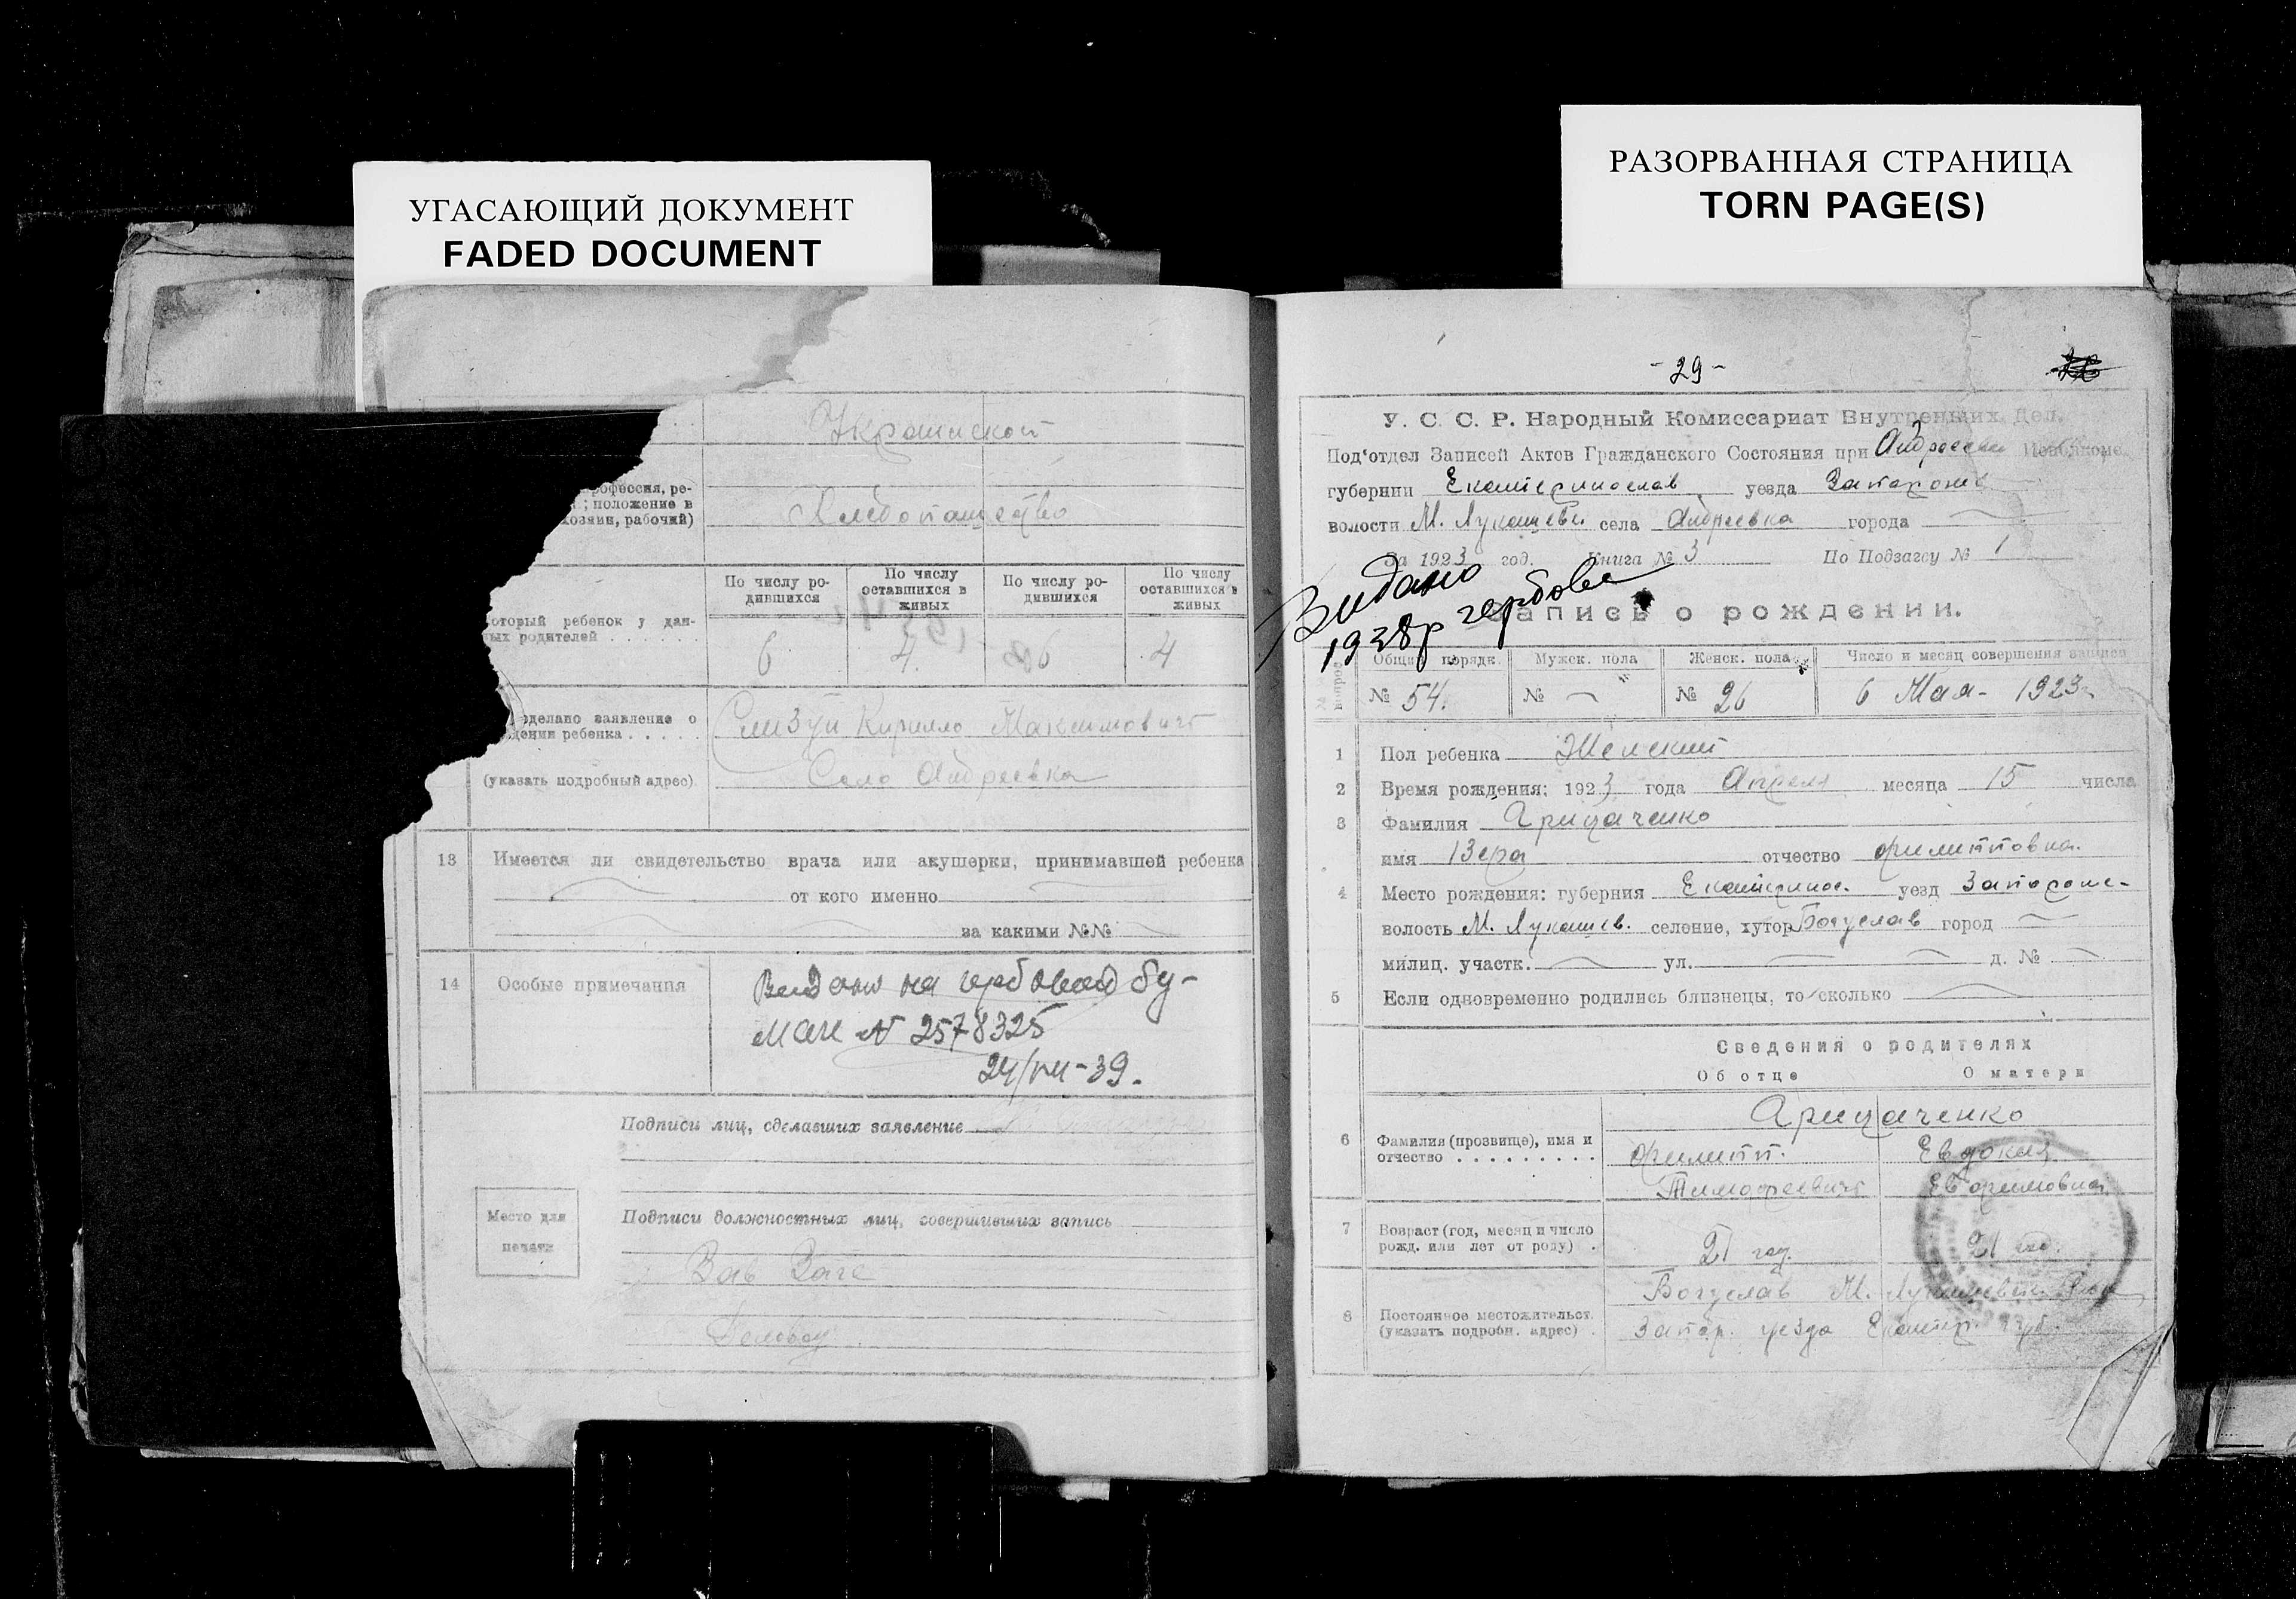 УГАСАЮЩИЙ ДОКУМЕНТ
FADED DOCUMENT
РАЗОРВАННАЯ СТРАНИЦА
TORN PAGE(S)
Украинской
рофессия, ре-
; положение в
хозяин, рабочий)
Хлебопашество
По числу ро-
дившихся
По числу
оставшихся в
живых
По числу ро-
дившихся
По числу
оставшихся в
живых
оторый ребенок у дан-
ых родителей . . . . . . .
6 4 6 4
сделано заявление о
дении ребенка . . . . .
Слизун Кирилло Максимович
(указать подробный адрес)
Село Андреевка
13 Имеется ли свидетельство врача или акушерки, принимавшей ребенка
от кого именно
за какими №№
14 Особые примечания
Видано на гербовой бу-
маге N 2578325
24/VII-39.
Подписи лиц, сделавших заявление
Место для
печати
Подписи должностных лиц, совершивших запись
Зав Загс
- 29 -
У. С. С. Р. Народный Комиссариат Внутренних Дел.
Под'отдел Записей Актов Гражданского Состояния при Андреевск
губернии Екатеринослав уезда Запорож
волости М. Лукашевк. села Андреевка города
За 1923 год. Книга № 3 По Подзагсу № 1
Видано гербове
1938р
Запись о рождении.
№ вопроса
Общий порядк. Мужск. пола Женск. пола Число и месяц совершения записи
№ 54. № № 26 6 Мая - 1923
1 Пол ребенка Женский
2 Время рождения: 1923 года Апреля месяца 15 числа
3 Фамилия Грицаченко
имя Вера отчество Филипповна.
4 Место рождения: губерния Екатеринос. уезд Запорож-
волость М. Лукашев. селение, хутор Богуслав город
милиц. участк. ул. д. №
5 Если одновременно родились близнецы, то сколько
Сведения о родителях
Об отце О матери
6 Фамилия (прозвище), имя и
отчество . . . . . . . . .
Грицаченко
Филипп. Евдокия
Тимофеевич Ефимовна
7 Возраст (год, месяц и число
рожд. или лет от роду) .
21 год. 21 год.
8 Постоянное местожительст.
(указать подробн. адрес) .
Богуслав М. Лукашевск.
Запор. уезда Екатер. губ.